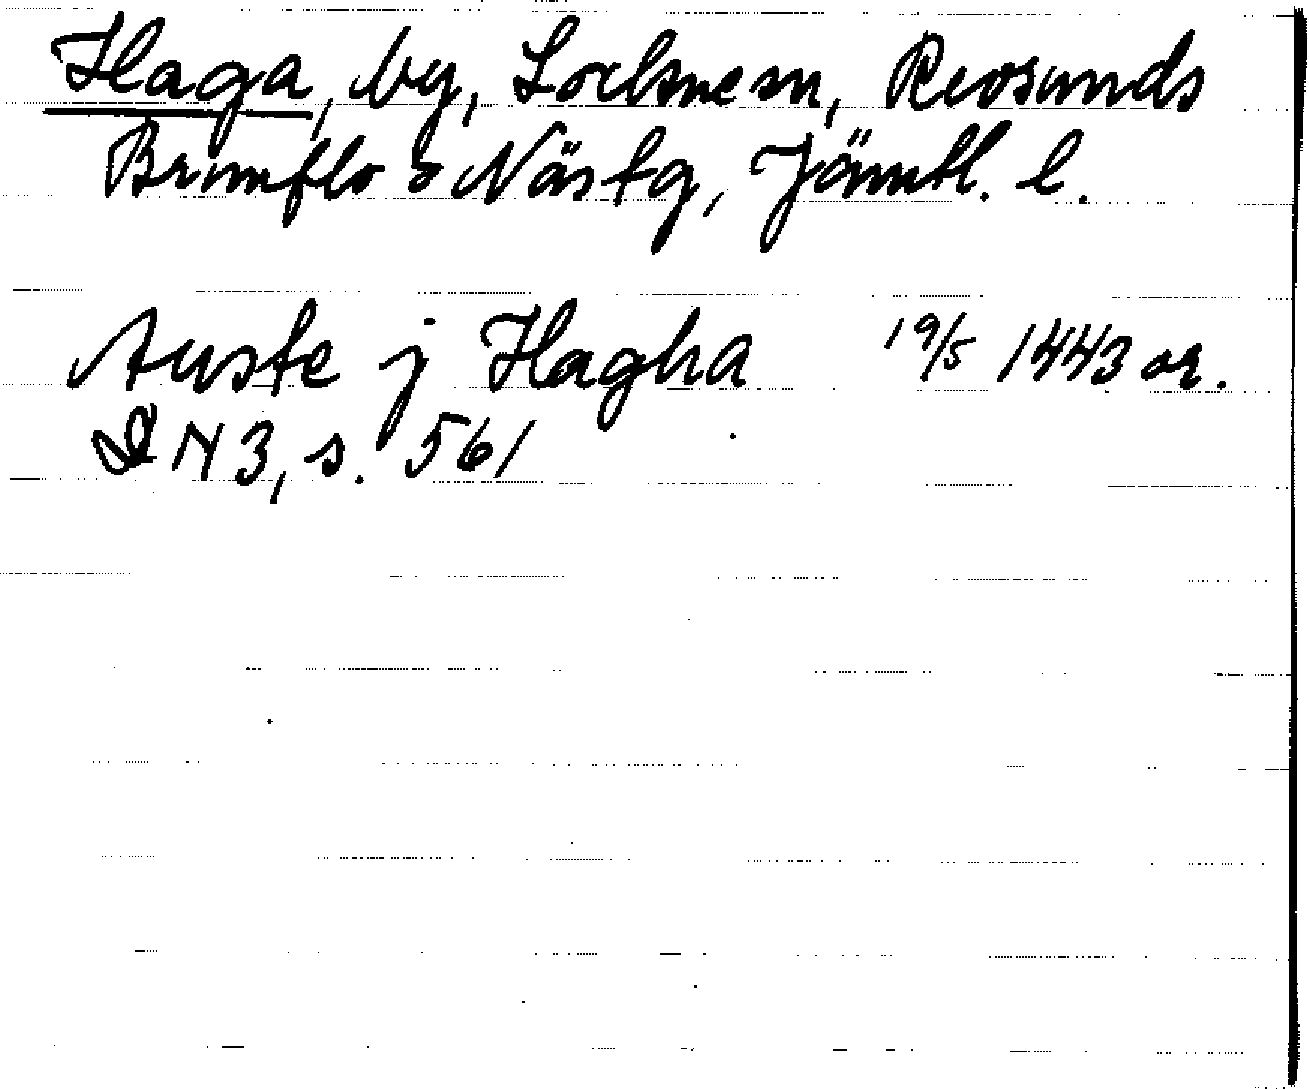 Haga, by, Locknesn, Revsunds
Brunflo o Näs tg, Jämtl. l.
Auste j Hagha 19/5 1443 or.
DN 3, s. 561